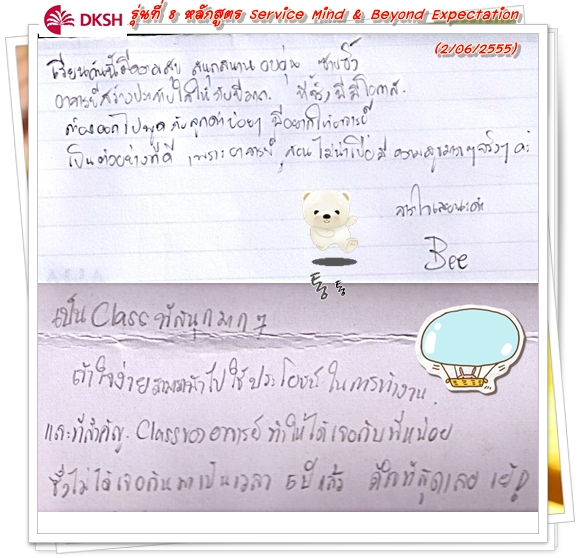 DKSH รุ่นที่ 8 หลักสูตร Service Mind & Beyond Expectation
(2/06/2555)
เรียนวันนี้มีความสุข สนุกสนาน อบอุ่น ซาบซึ้ง
อาจารย์สร้างประทับใจให้กับบีมาก ที่ซึ่งบีมีโอกาส
ต้องออกไปพูดกับลูกค้าบ่อยๆ บีอยากให้อาจารย์
เป็นตัวอย่างที่ดี เพราะอาจารย์ สอนไม่น่าเบื่อมี ความสนุกมากๆจริงๆ ค่ะ
Bee
통통
เป็น Class ที่สนุกมาก ๆ
เข้าใจง่ายสามารถนำไปใช้ประโยชน์ในการทำงาน
และที่สำคัญ Class ของอาจารย์ ทำให้ได้เจอกับพี่หน่อย
ซึ่งไม่ได้เจอกันมาเป็นเวลา 5 ปี แล้ว ดีใจที่สุดเลย